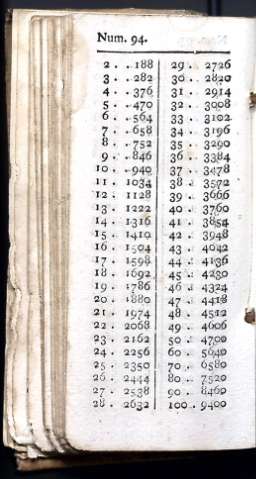 Num. 94.
2 . . 188
3 . . 282
4 . . 376
5 . . 470
6 . . 564
7 . . 658
8 . . 752
9 . . 846
10 . . 940
11 . 1034
12 . 1128
13 . 1222
14 . 1316
15 . 1410
16 . 1504
17 . 1598
18 . 1692
19 . 1786
20 . 1880
21 . 1974
22 . 2068
23 . 2162
24 . 2256
25 . 2350
26 . 2444
27 . 2538
28 . 2632
29 . 2726
30 . 2820
31 . 2914
32 . 3008
33 . 3102
34 . 3196
35 . 3290
36 . 3384
37 . 3478
38 . 3572
39 . 3666
40 . 3760
41 . 3854
42 . 3948
43 . 4042
44 . 4136
45 . 4230
46 . 4324
47 . 4418
48 . 4512
49 . 4606
50 . 4700
60 . 5640
70 . 6580
80 . 7520
90 . 8460
100 . 9400